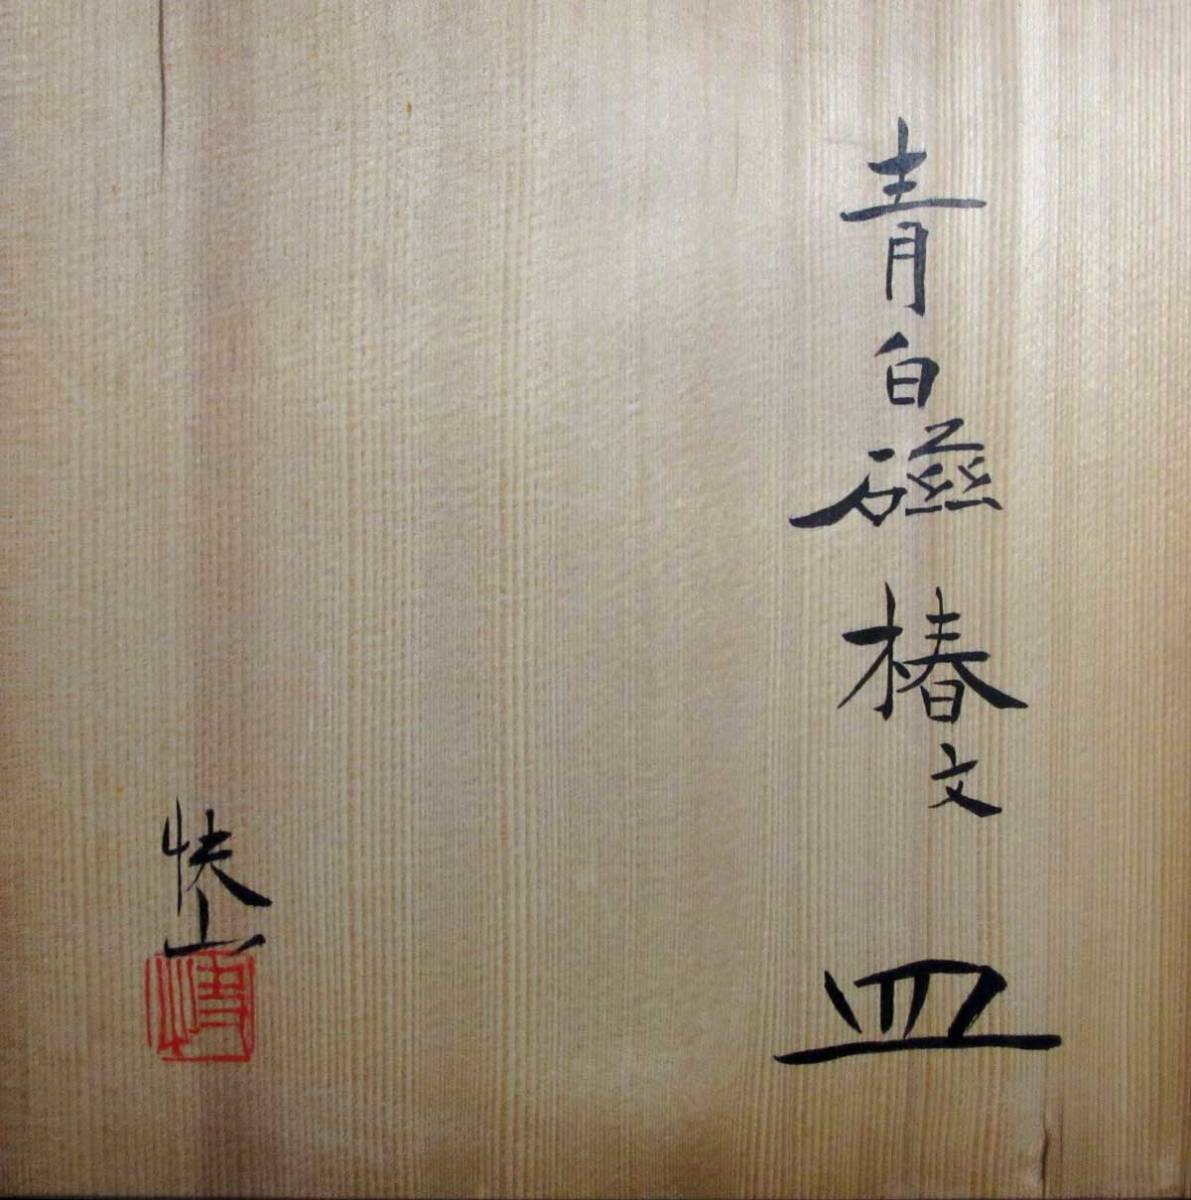 青白磁 椿文 皿
快山